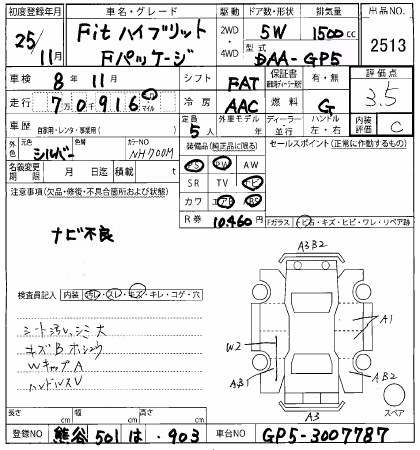 初度登録年月 車名・グレード 駆動 ドア数・形状 排気量 出品NO.
25/11月 Fit ハイブリット Fパッケージ 2WD・4WD 5W 1500cc 2513
型式 DAA-GP5
車検 8年11月 シフト FAT 保証書 有・無 評価点 3.5
走行 70916 km マイル 冷房 AAC 燃料 G
車歴 自家用・レンタ・事業用( ) 定員 5人 外車モデル 年 ディーラー・並行 ハンドル 左・右 内装評価 C
外色 元色 シルバー 色替 カラーNO NH700M 装備品(純正品に限る) セールスポイント(正常に動作するもの)
名義変更期限 月 日迄 積載 t PS PW AW
注意事項(欠品・修復・不具合箇所および状態) SR TV ナビ
カワ エアB ABS
R券 10,460円 Fガラス ヒ石・キズ・ヒビ・ワレ・リペア跡
ナビ不良
A3B2
検査員記入 内装 汚レ・スレ・キズ・キレ・コゲ・穴
シート汚レ、シミ大
キズB
WキャップA
ハンドルスレ
A1
W2
A3
AB2
A3
スペア
長さ cm 幅 cm 高さ cm
登録NO 熊谷 501 は ・903 車台NO GP5-3007787